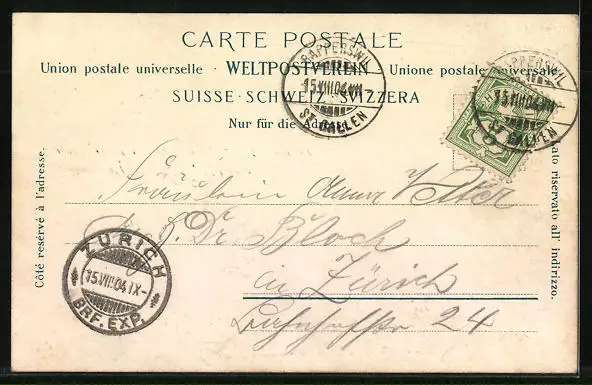 CARTE POSTALE
Union postale universelle · WELTPOSTVEREIN · Unione postale universale
SUISSE · SCHWEIZ · SVIZZERA
Nur für die Adresse
Côté resérvé à l'adresse.
Lato riservato all' indirizzo.
RAPPERSWIL
15.VIII.04.VII
ST. GALLEN
RAPPERSWIL
15.VIII.04.VII
ST. GALLEN
5
ZÜRICH
15.VIII.04.IX-
BRF. EXP.
Fräulein Anna Vetter
Dr. Bloch
in Zürich
Bahnhofstr 24